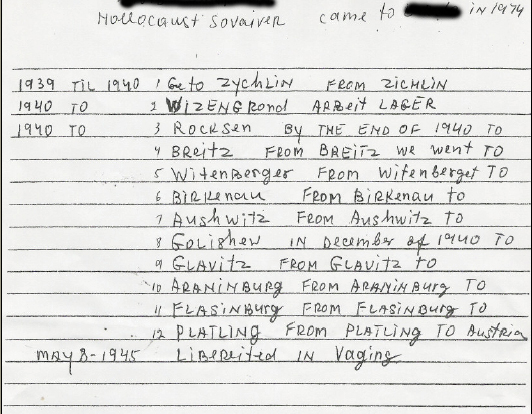 Hollocaust Sovaiver came to in 1974
1939 TIL 1940 1 Geto ZYCHLIN FROM ZICHLIN
1940 TO 2 WIZENGROND ARBEIT LAGER
1940 TO 3 ROCKSEN BY THE END OF 1940 TO
4 BREITZ FROM BREITZ we went TO
5 WITENBERGER FROM Witenberget TO
6 BIRKENAU FROM BIRKENAU to
7 AUSHWITZ FROM AUSHWITZ TO
8 GOLISHEW IN December of 1940 TO
9 GLAVITZ FROM GLAVITZ to
10 ARANINBURG FROM ARANINBURG TO
11 FLASINBURG FROM FLASINBURG TO
12 PLATLING FROM PLATLING TO Austria
MAY 8-1945 LIBEREITED IN Vaging